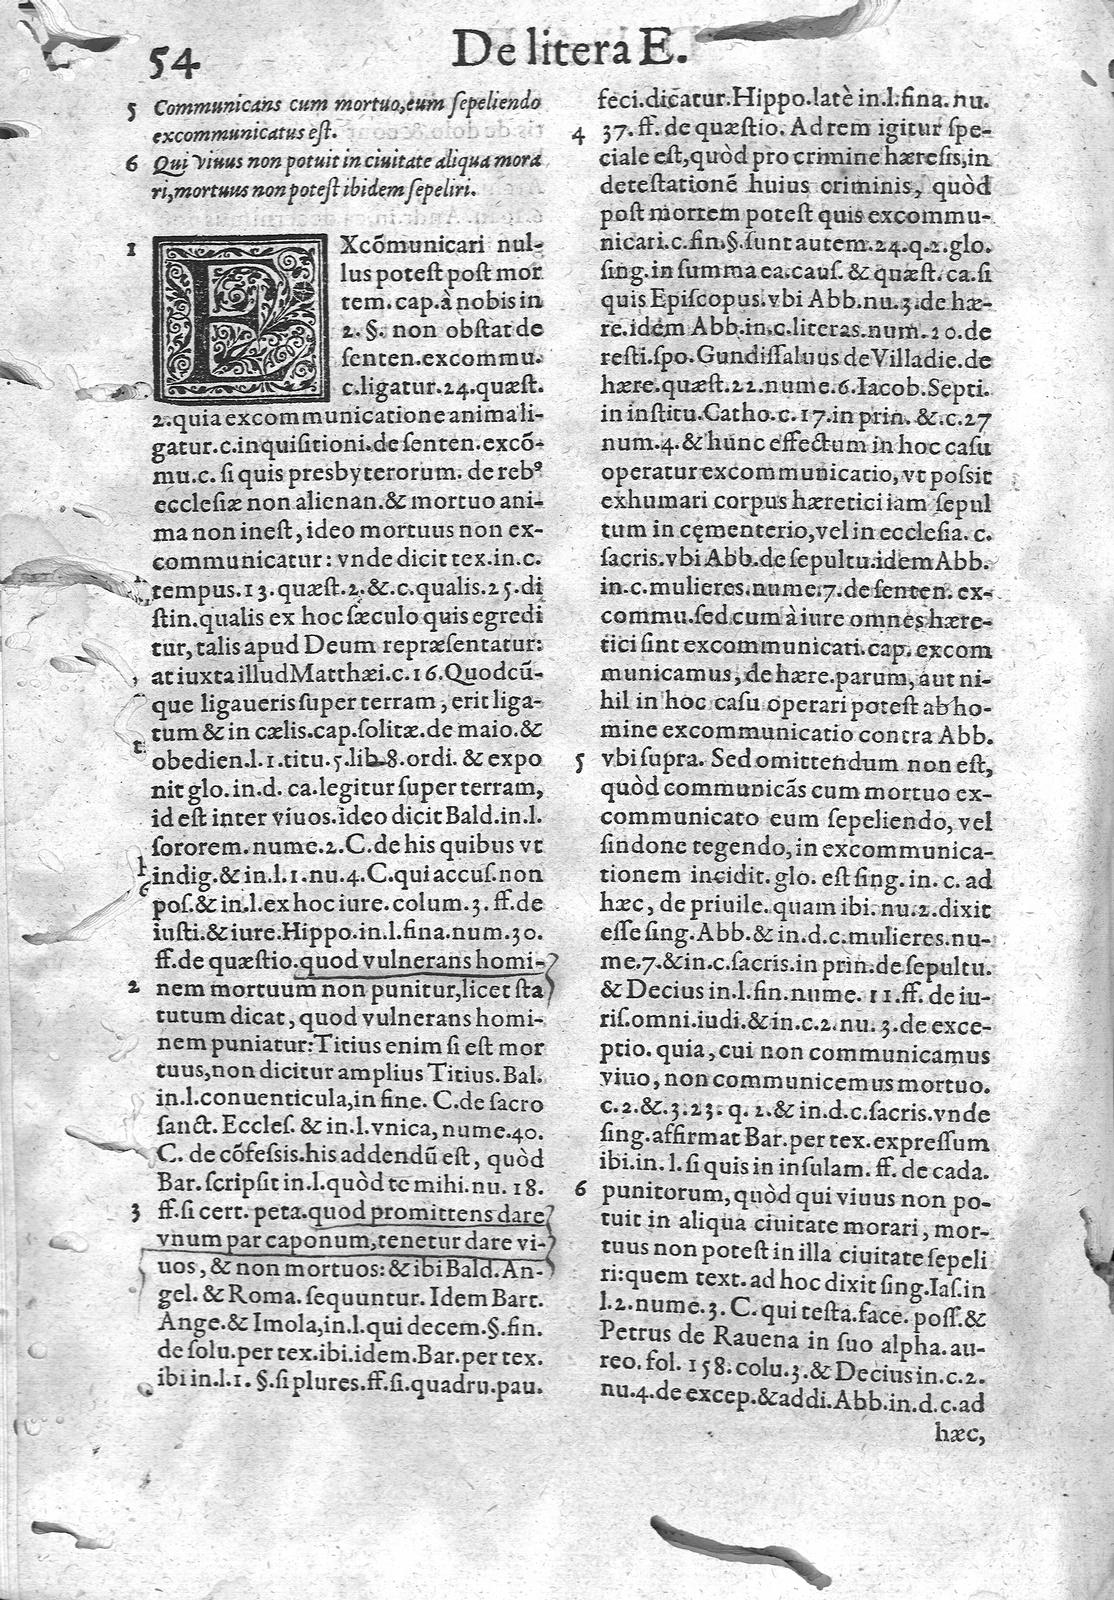 54
De litera E.
5 Communicans cum mortuo,eum ſepeliendo
excommunicatus eſt.
6 Qui viuus non potuit in ciuitate aliqua mora
ri,mortuus non poteſt ibidem ſepeliri.
1 EXcõmunicari nul-
lus poteſt poſt mor
tem. cap.à nobis in
2. §. non obſtat de
ſenten.excommu.
c.ligatur.24.quæſt.
2.quia excommunicatione anima li-
gatur.c.inquiſitioni.de ſenten.excõ-
mu.c. ſi quis presbyterorum. de rebꝰ
eccleſiæ non alienan.& mortuo ani-
ma non ineſt, ideo mortuus non ex-
communicatur: vnde dicit tex.in.c.
tempus.13.quæſt.2.&.c.qualis.25.di
ſtin.qualis ex hoc ſæculo quis egredi
tur, talis apud Deum repræſentatur:
at iuxta illud Matthæi.c.16.Quodcũ-
que ligaueris ſuper terram, erit liga-
tum & in cælis.cap.ſolitæ.de maio.&
obedien.l.1.titu.5.lib.8.ordi. & expo
nit glo.in.d. ca.legitur ſuper terram,
id eſt inter viuos.ideo dicit Bald.in.l.
ſororem.nume.2.C.de his quibus vt
indig.& in.l.1.nu.4.C.qui accuſ.non
poſ.& in.l.ex hoc iure.colum.3.ff.de
iuſti.& iure.Hippo.in.l.fina.num.30.
ff.de quæſtio.quod vulnerans homi-
2 nem mortuum non punitur,licet ſta
tutum dicat, quod vulnerans homi-
nem puniatur:Titius enim ſi eſt mor
tuus,non dicitur amplius Titius.Bal.
in.l.conuenticula,in fine. C.de ſacro
ſanct. Eccleſ. & in.l.vnica, nume.40.
C. de cõfeſsis.his addendũ eſt, quòd
Bar. ſcripſit in.l.quòd te mihi.nu.18.
3 ff.ſi cert. peta.quod promittens dare
vnum par caponum,tenetur dare vi-
uos, & non mortuos: & ibi Bald.An-
gel. & Roma. ſequuntur. Idem Bart.
Ange.& Imola,in.l.qui decem.§.fin.
de ſolu.per tex.ibi.idem.Bar.per tex.
ibi in.l.1. §.ſi plures.ff.ſi.quadru.pau.
feci.dicatur.Hippo.latè in.l.fina.nu.
4 37.ff.de quæſtio. Ad rem igitur ſpe-
ciale eſt,quòd pro crimine hæreſis,in
deteſtationẽ huius criminis, quòd
poſt mortem poteſt quis excommu-
nicari.c.fin.§.ſunt autem.24.q.2.glo.
ſing.in ſumma ea.cauſ. & quæſt.ca.ſi
quis Epiſcopus.vbi Abb.nu.3.de hæ-
re.idem Abb.in.c.literas.num.20.de
reſti.ſpo.Gundiſſaluus de Villadie.de
hære.quæſt.22.nume.6.Iacob.Septi.
in inſtitu.Catho.c.17.in prin.&.c.27
num.4.& hunc effectum in hoc caſu
operatur excommunicatio,vt poſsit
exhumari corpus hæretici iam ſepul
tum in cęmenterio,vel in eccleſia. c.
ſacris.vbi Abb.de ſepultu.idem Abb.
in.c.mulieres.nume.7.de ſenten. ex-
commu.ſed cum à iure omnes hære-
tici ſint excommunicati.cap.excom
municamus, de hære.parum, aut ni-
hil in hoc caſu operari poteſt ab ho-
mine excommunicatio contra Abb.
5 vbi ſupra. Sed omittendum non eſt,
quòd communicãs cum mortuo ex-
communicato eum ſepeliendo, vel
ſindone tegendo, in excommunica-
tionem incidit. glo. eſt ſing. in. c. ad
hæc, de priuile. quam ibi.nu.2.dixit
eſſe ſing.Abb.& in.d.c.mulieres.nu-
me.7.& in.c.ſacris.in prin.de ſepultu.
& Decius in.l.fin.nume. 11.ff. de iu-
riſ.omni.iudi.& in.c.2.nu.3.de exce-
ptio. quia, cui non communicamus
viuo, non communicemus mortuo.
c.2.&.3.23.q.2.& in.d.c.ſacris.vnde
ſing.affirmat Bar.per tex.expreſſum
ibi.in. l.ſi quis in inſulam. ff. de cada.
6 punitorum, quòd qui viuus non po-
tuit in aliqua ciuitate morari, mor-
tuus non poteſt in illa ciuitate ſepeli
ri:quem text. ad hoc dixit ſing.Iaſ.in
l.2.nume.3. C. qui teſta.face. poſſ.&
Petrus de Rauena in ſuo alpha. au-
reo.fol. 158.colu.3.& Decius in.c.2.
nu.4.de excep.&addi.Abb.in.d.c.ad
hæc,